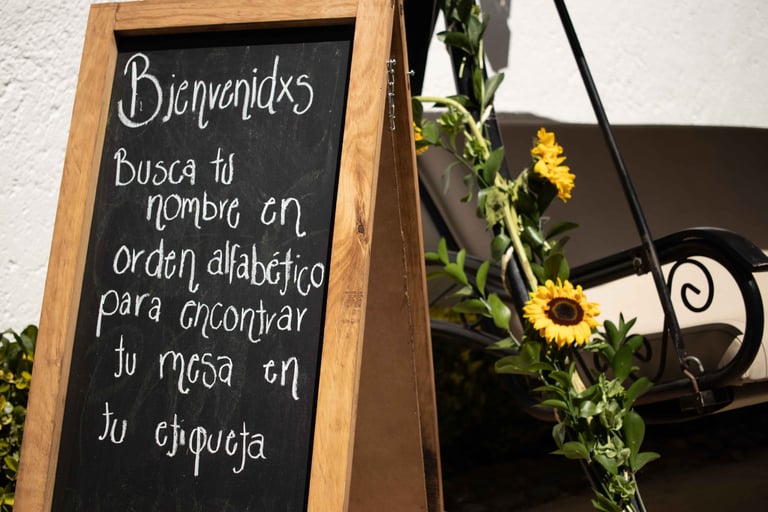 Bienvenidxs
Busca tu
nombre en
orden alfabético
para encontrar
tu mesa en
tu etiqueta